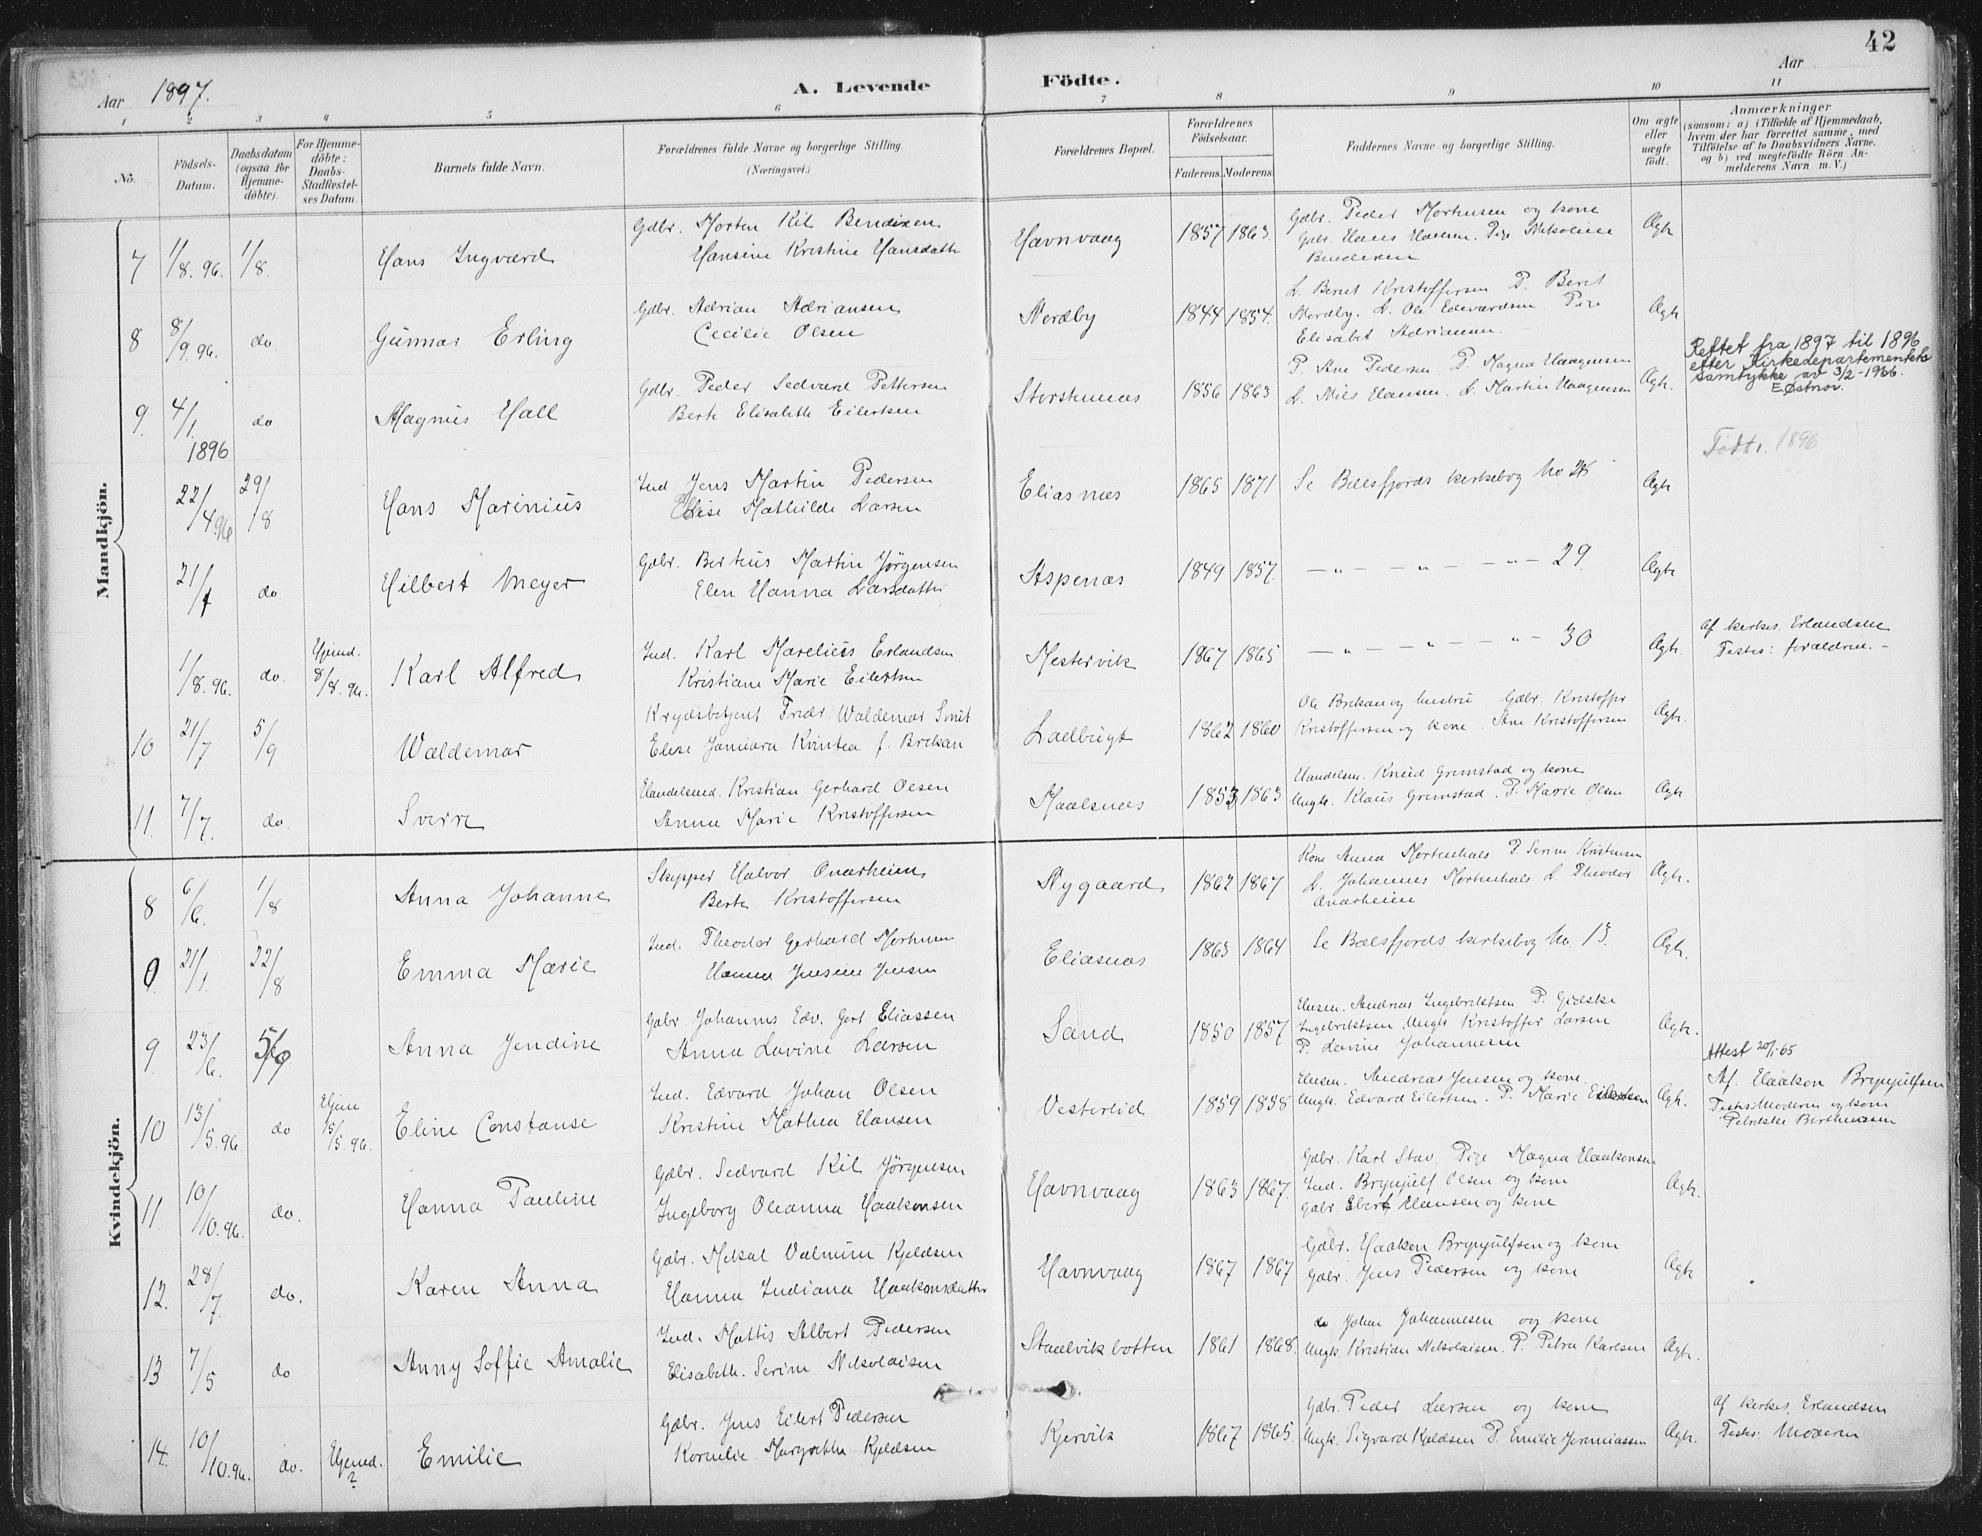 42
Aar 1897.
A. Levende Födte.
Aar
1 2 3 4 5 6 7 8 9 10 11
No.
Födsels-Datum.
Daabsdatum (ogsaa for Hjemmedöbte).
For Hjemmedöbte: Daabs-Stadfæstelses Datum.
Barnets fulde Navn.
Forældrenes fulde Navne og borgerlige Stilling.
(Næringsvei.)
Forældrenes Bopæl.
Forældrenes Födselsaar.
Faderens. Moderens.
Faddernes Navne og borgerlige Stilling.
Om ægte eller uægte födt.
Anmærkninger
(saasom: a) i Tilfælde af Hjemmedaab,
hvem der har forrettet samme, med
Tilföielse af to Daabsvidners Navne.
og b) ved uægtefödte Börn Anmelderens Navn m. V.)
Mandkjön.
7 1/8. 96. 1/8. Hans Ingvard
Gdbr. Morten Kil Bendixen
Hansine Kristine Hansdatt
Havnvaag 1857 1863.
Gdbr. Peder Mortensen og kone
Gdbr. Hans Hansen. Pige Nikoline
Bendixen
Ægte
8 8/9. 96. do. Gunnar Erling
Gdbr. Adrian Adriansen
Cecilie Olsen
Nordby 1844 1854.
U. Bernt Kristoffersen P. Berit
Nordby. U. Ole Edevardsen Pige
Elisabet Adriansen.
Ægte
9. 4/1. 1896 do Magnus Hall
Gdbr. Peder Sedvard Pettersen
Berte Elisabeth Eilertsen
Storstennes 1856 1863
P. Ane Pedersen. P. Magna Haagensen
U. Nils Hansen. U. Martin Haagensen
Ægte.
Rettet fra 1897 til 1896
efter Kirkedepartementets
samtykke av 3/2-1966.
E Østnor.
Födt. 1896
22/4. 96 29/8 Hans Marinius
Ind. Jens Martin Pedersen
Elise Mathilde Larsen
Eliasnes 1865 1871
Se Balsfjords kirkebog No 28
Ægte
21/4 do Hilbert Meyer
Gdbr. Berteus Martin Jörgensen
Elen Hanna Larsdatter
Aspenes 1849 1857.
— „ — — „ — — „ — 29.
Ægte
1/8. 96. do. Hjemd. 8/8. 96. Karl Alfred
Ind. Karl Marelius Erlandsen
Kristiane Marie Eilertsen
Mestervik 1867 1865
— „ — — „ — — „ — 30
Ægte.
Af kirkes. Erlandsen
Testes: forældrene. -
10 21/7. 5/9 Waldemar
Krydsbetjent Fredr. Waldemar Smit
Elise Januara Kvintea f. Brekan
Ladbugt 1862 1860
Ole Brekan og hustru Gdbr. Kristoffer
Kristoffersen og kone. Ane Kristoffersen
Ægte.
11. 7/7. do. Sverre
Handelsmd. Kristian Gerhard Olsen
Anna Marie Kristoffersen
Maalsnes 1853 1863
Handelsm. Knud Grimstad og kone
Ungk. Klaus Grimstad. P. Marie Olsen
Ægte
Kvindekjön.
8 6/6. 1/8 Anna Johanne
Skipper Halvor Onarheim
Berte Kristoffersen
Nygaard 1862 1867
Kone Anna Mortenhals P. Serine Kristensen
U. Johannes Mortenhals U. Theodor
Onarheim
Ægte.
0. 21/1. 22/8 Emma Marie
Ind. Theodor Gerhard Mortensen
Hanna Jensine Jensen
Eliasnes 1863 1864
Se Balsfjords kirkebog No. 13.
Ægte.
9 23/6. 5/9 Anna Jendine
Gdbr. Johannes Edv. Gert Eliassen
Anna Lavine Larsen
Sand 1850 1857
Husm. Andreas Ingebriktsen P. Gidske
Ingebriktsen Ungk Kristoffer Larsen
P. Lavine Johannesen
Ægte.
10 13/5. 96. do Hjem 15/5. 96. Eline Constanse
Ind. Edvard Johan Olsen
Kristine Mathea Hansen
Vesterlid 1859 1858
Husm. Andreas Jensen og kone
Ungk. Edvard Eilertsen. P. Marie Eilertsen
Ægte.
Attest 20/1-65
Af. Haakon Brynjulfsen
Testes: Moderen og kone
11. 10/10. 96. do. Hanna Pauline
Gdbr. Sedvard Kil Jörgensen
Ingeborg Oleanna Haakonsen
Havnvaag 1863 1867.
Gdbr. Karl Stav. Pige Magna Haakonsen
Ind. Brynjulf Olsen og kone
Gdbr. Ebert Hansen og kone
Ægte.
12. 28/7. do. Karen Anna
Gdbr. Mikal Valnum Kjeldsen
Hanna Indiana Haakonsdatter
Havnvaag 1867 1867
Gdbr. Haakon Brynjulfsen og kone
Gdbr. Jens Pedersen og kone
Ægte
13 7/5 do Anny Soffie Amalie
Ind. Mattis Albert Pedersen
Elisabeth. Serine Nikolaisen
Staalvikbotten 1861 1868.
do Johan Johannesen og kone
Ungk. Kristian Nikolaisen. P. Petra Karlsen
Ægte.
14. 10/10. 96. do. Hjemd. ? Emilie
Gdbr. Jens Eilert Pedersen
Kornelie Margrethe Kjeldsen
Kjervik 1867 1865.
Gdbr. Peder Larsen og kone
Ungk. Sigvard Kjeldsen P. Emilie Jeremiassen
Ægte.
af kirkes. Erlandsen
Testes: Moderen